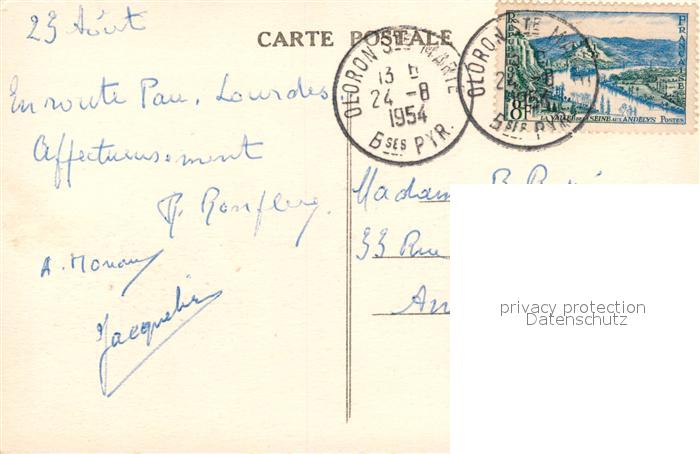 23 Août
CARTE POSTALE
En route Pau, Lourdes.
Affectueusement
A. Monau
Jacqueline
OLORON Ste MARIE
13 H
24 -8
1954
Bses PYR.
OLORON STE MA
24 -8
1954
Bses PYR.
REPUBLIQUE
FRANÇAISE
8F
LA VALLÉE DE LA SEINE AUX ANDELYS POSTES
Madame B.
33 Rue
An
privacy protection
Datenschutz